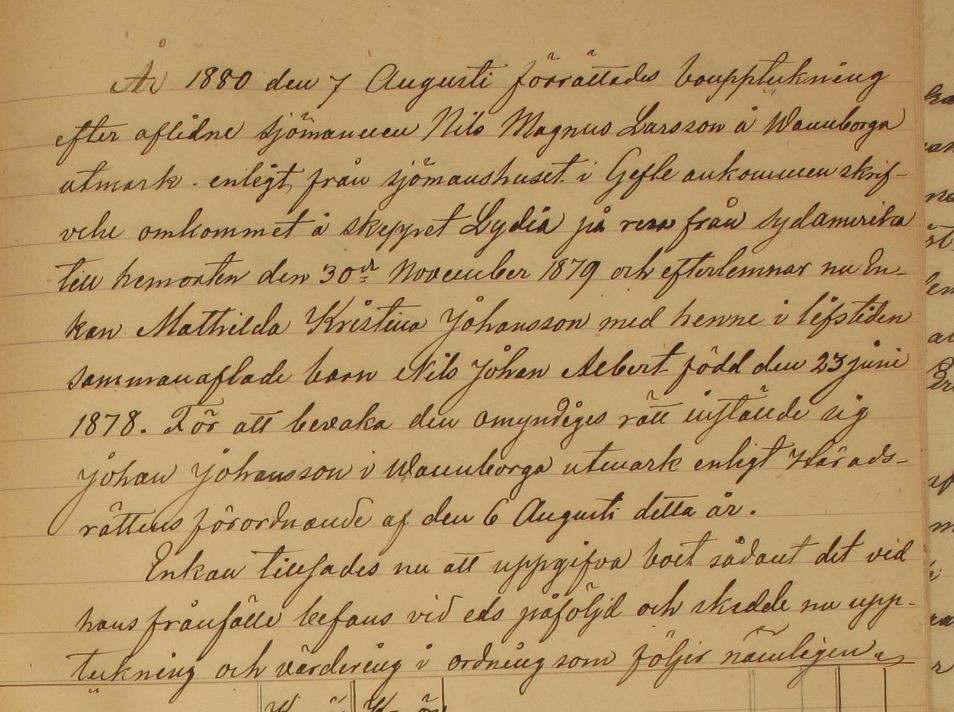 År 1880 den 7 Augusti förrättades bouppteckning
efter aflidne sjömannen Nils Magnus Larsson å Wannborga
utmark. enligt från sjömanshuset i Gefle ankommen skrif-
velse omkommet å skeppet Lydia på resa från Sydamerika
till hemorten den 30de November 1879 och efterlemnar nu En-
kan Mathilda Kristina Johansson med henne i lifstiden
sammanaflade barn Nils Johan Albert född den 23 juni
1878. För att bevaka den omyndiges rätt instälde sig
Johan Johansson i Wannborga utmark enligt Härads-
rättens förordnande af den 6 Augusti detta år.
Enkan tillsades nu att uppgifva boet sådant det vid
hans frånfälle befans vid eds påföljd och skedde nu upp-
teckning och värdering i ordning som följer nämligen
K ö K ör